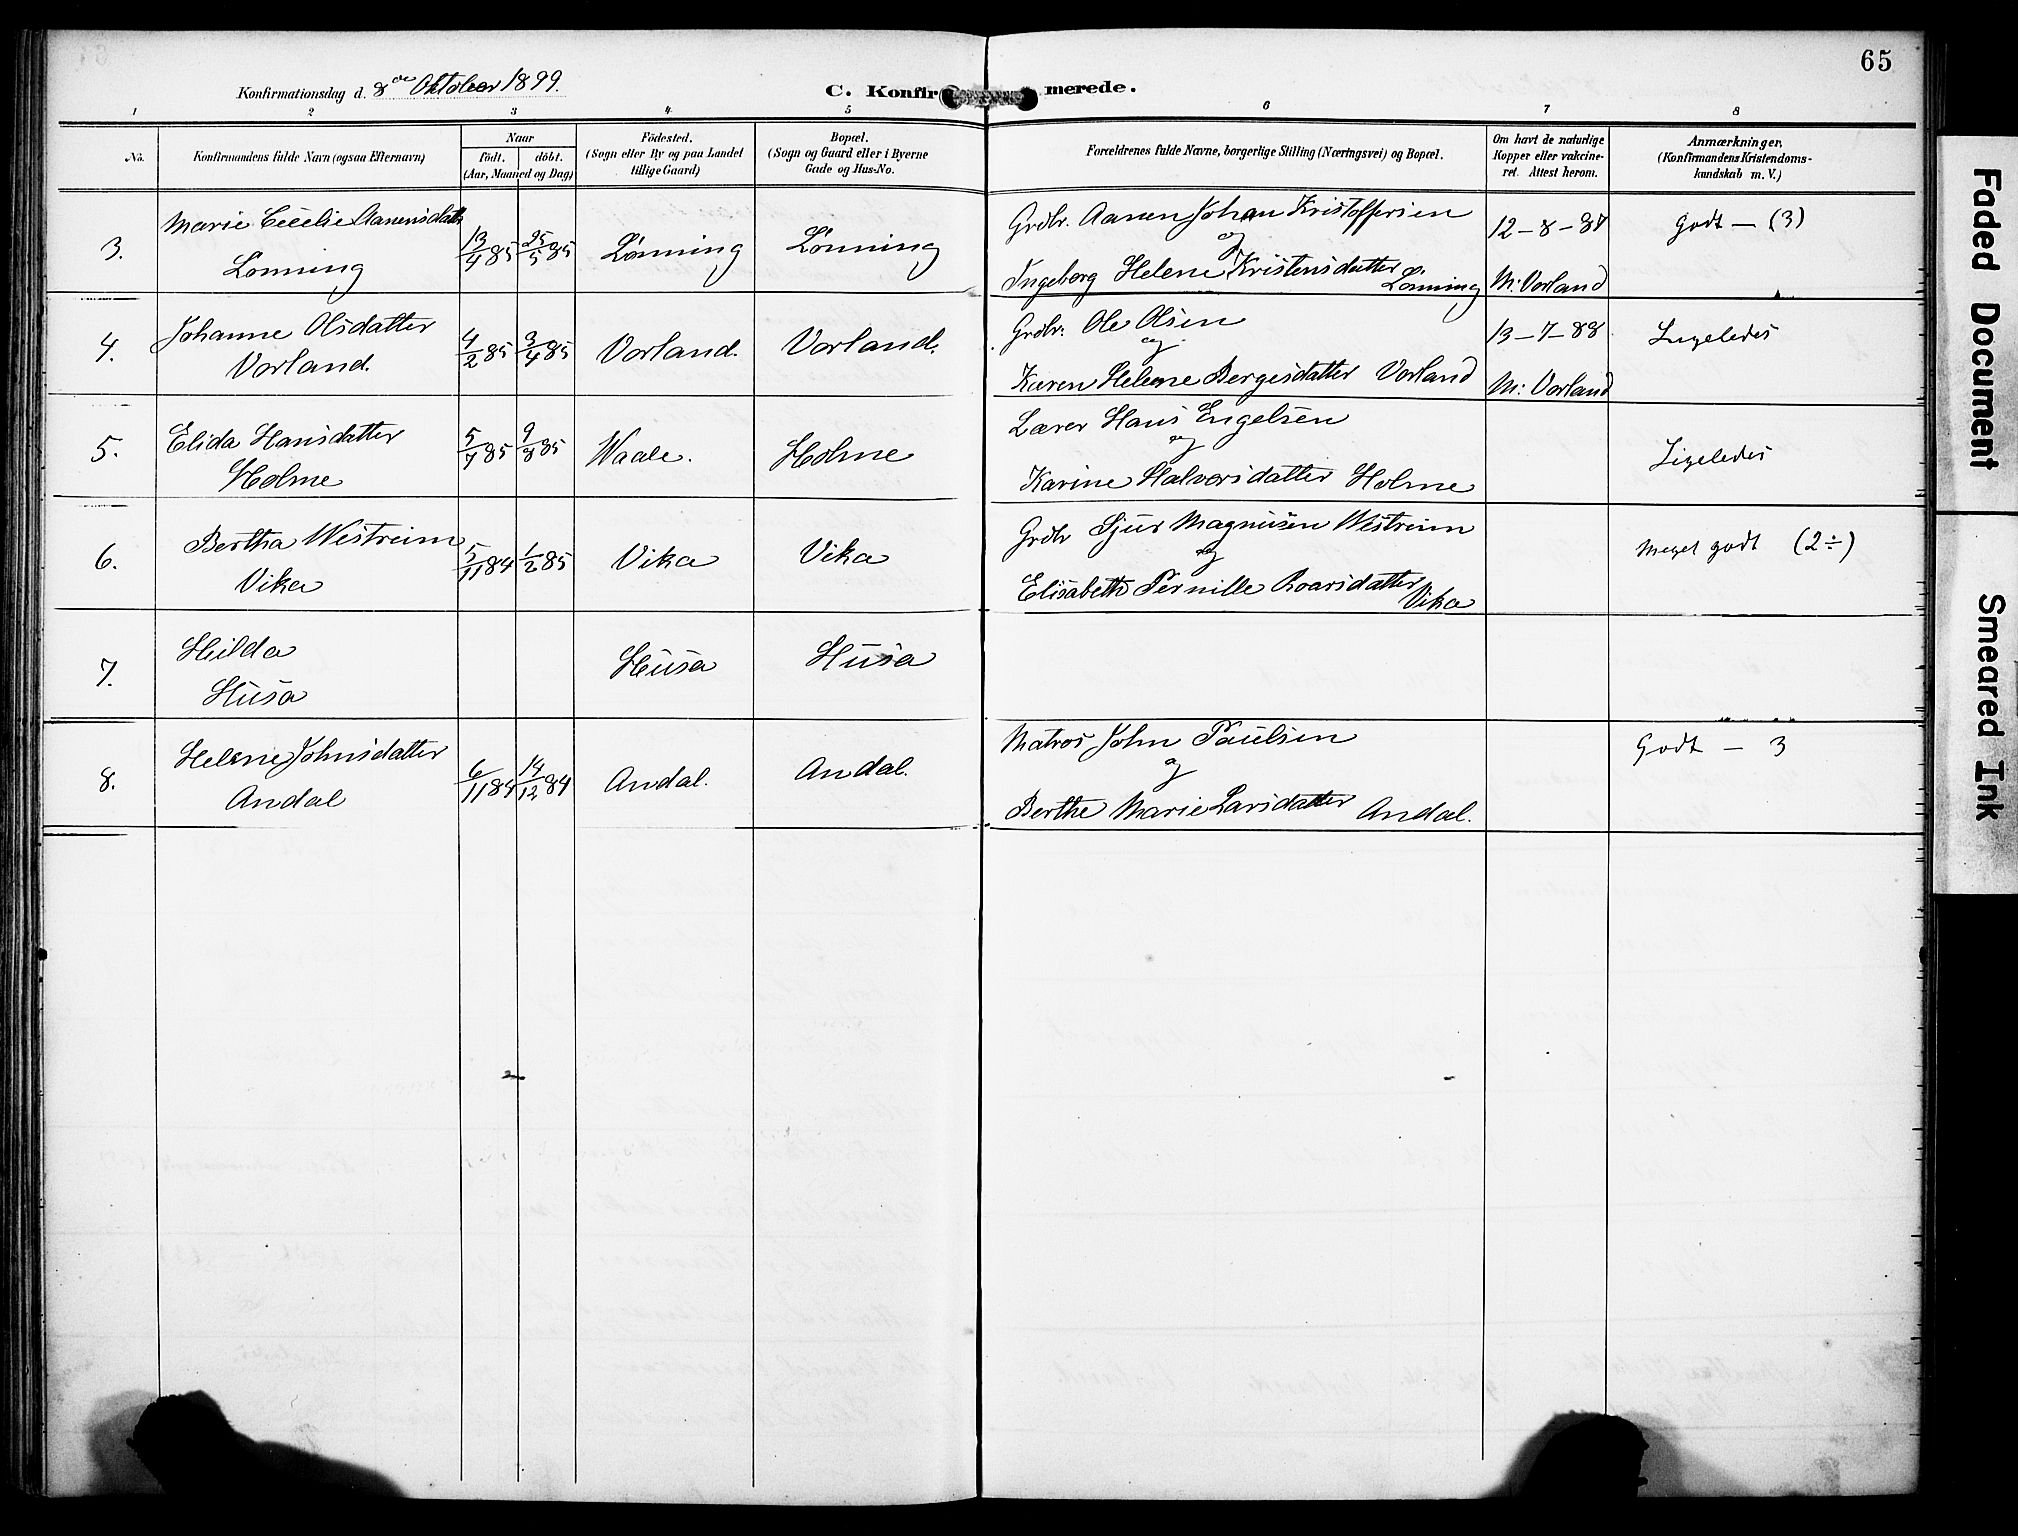 65
Konfirmationsdag d. 8de Oktober 1899.
C. Konfirmerede.
1 2 3 4 5 6 7 8
No.
Konfirmandens fulde Navn (ogsaa Efternavn)
Naar
født. døbt.
(Aar, Maaned og Dag)
Födested.
(Sogn eller By og paa Landet
tillige Gaard)
Bopæl.
(Sogn og Gaard eller i Byerne
Gade og Hus-No.
Forældrenes fulde Navne, borgerlige Stilling (Næringsvei) og Bopæl.
Om havt de naturlige
Kopper eller vakcine-
ret. Attest herom.
Anmærkninger,
(Konfirmandens Kristendoms-
kundskab m. V.)
3.
Marie Cecelie Aanensdatter
Lønning
13/4 85 25/5 85
Lønning
Lønning
Grdbr. Aanen Johan Kristoffersen
og
Ingeborg Helene Kristensdatter
Lønning
12-8-87
M. Vorland
Godt - (3)
4.
Johanne Olsdatter
Vorland.
4/2 85 3/4 85
Vorland.
Vorland.
Grdbr. Ole Olsen
og
Karen Helene Bergesdatter Vorland
13-7-88
M. Vorland
Ligeledes
5.
Elida Hansdatter
Holme
5/7 85 9/8 85
Waale.
Holme
Lærer Hans Engelsen
og
Karine Halvorsdatter Holme
Ligeledes
6.
Bertha Westreim
Vika
5/11 84 1/2 85
Vika
Vika
Grdbr Sjur Magnusen Westreim
og
Elisabeth Pernille Roarsdatter
Vika
Meget godt (2÷)
7.
Hilda
Husa
Husa
Husa
8.
Helene Johnsdatter
Andal
6/11 84 14/12 84
Andal.
Andal.
Matros John Paulsen
og
Berthe Marie Larsdatter Andal.
Godt - 3
Faded Document
Smeared Ink